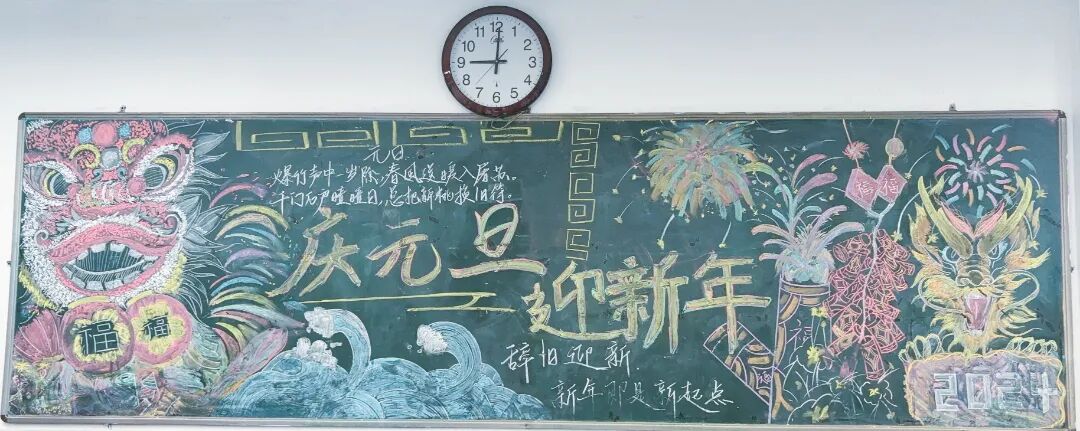 12
1
2
3
4
5
6
7
8
9
10
11
元旦
爆竹声中一岁除,春风送暖入屠苏。
千门万户曈曈日,总把新桃换旧符。
庆元旦
迎新年
辞旧迎新
新年即是新起点
福
福
福
福
福
2024